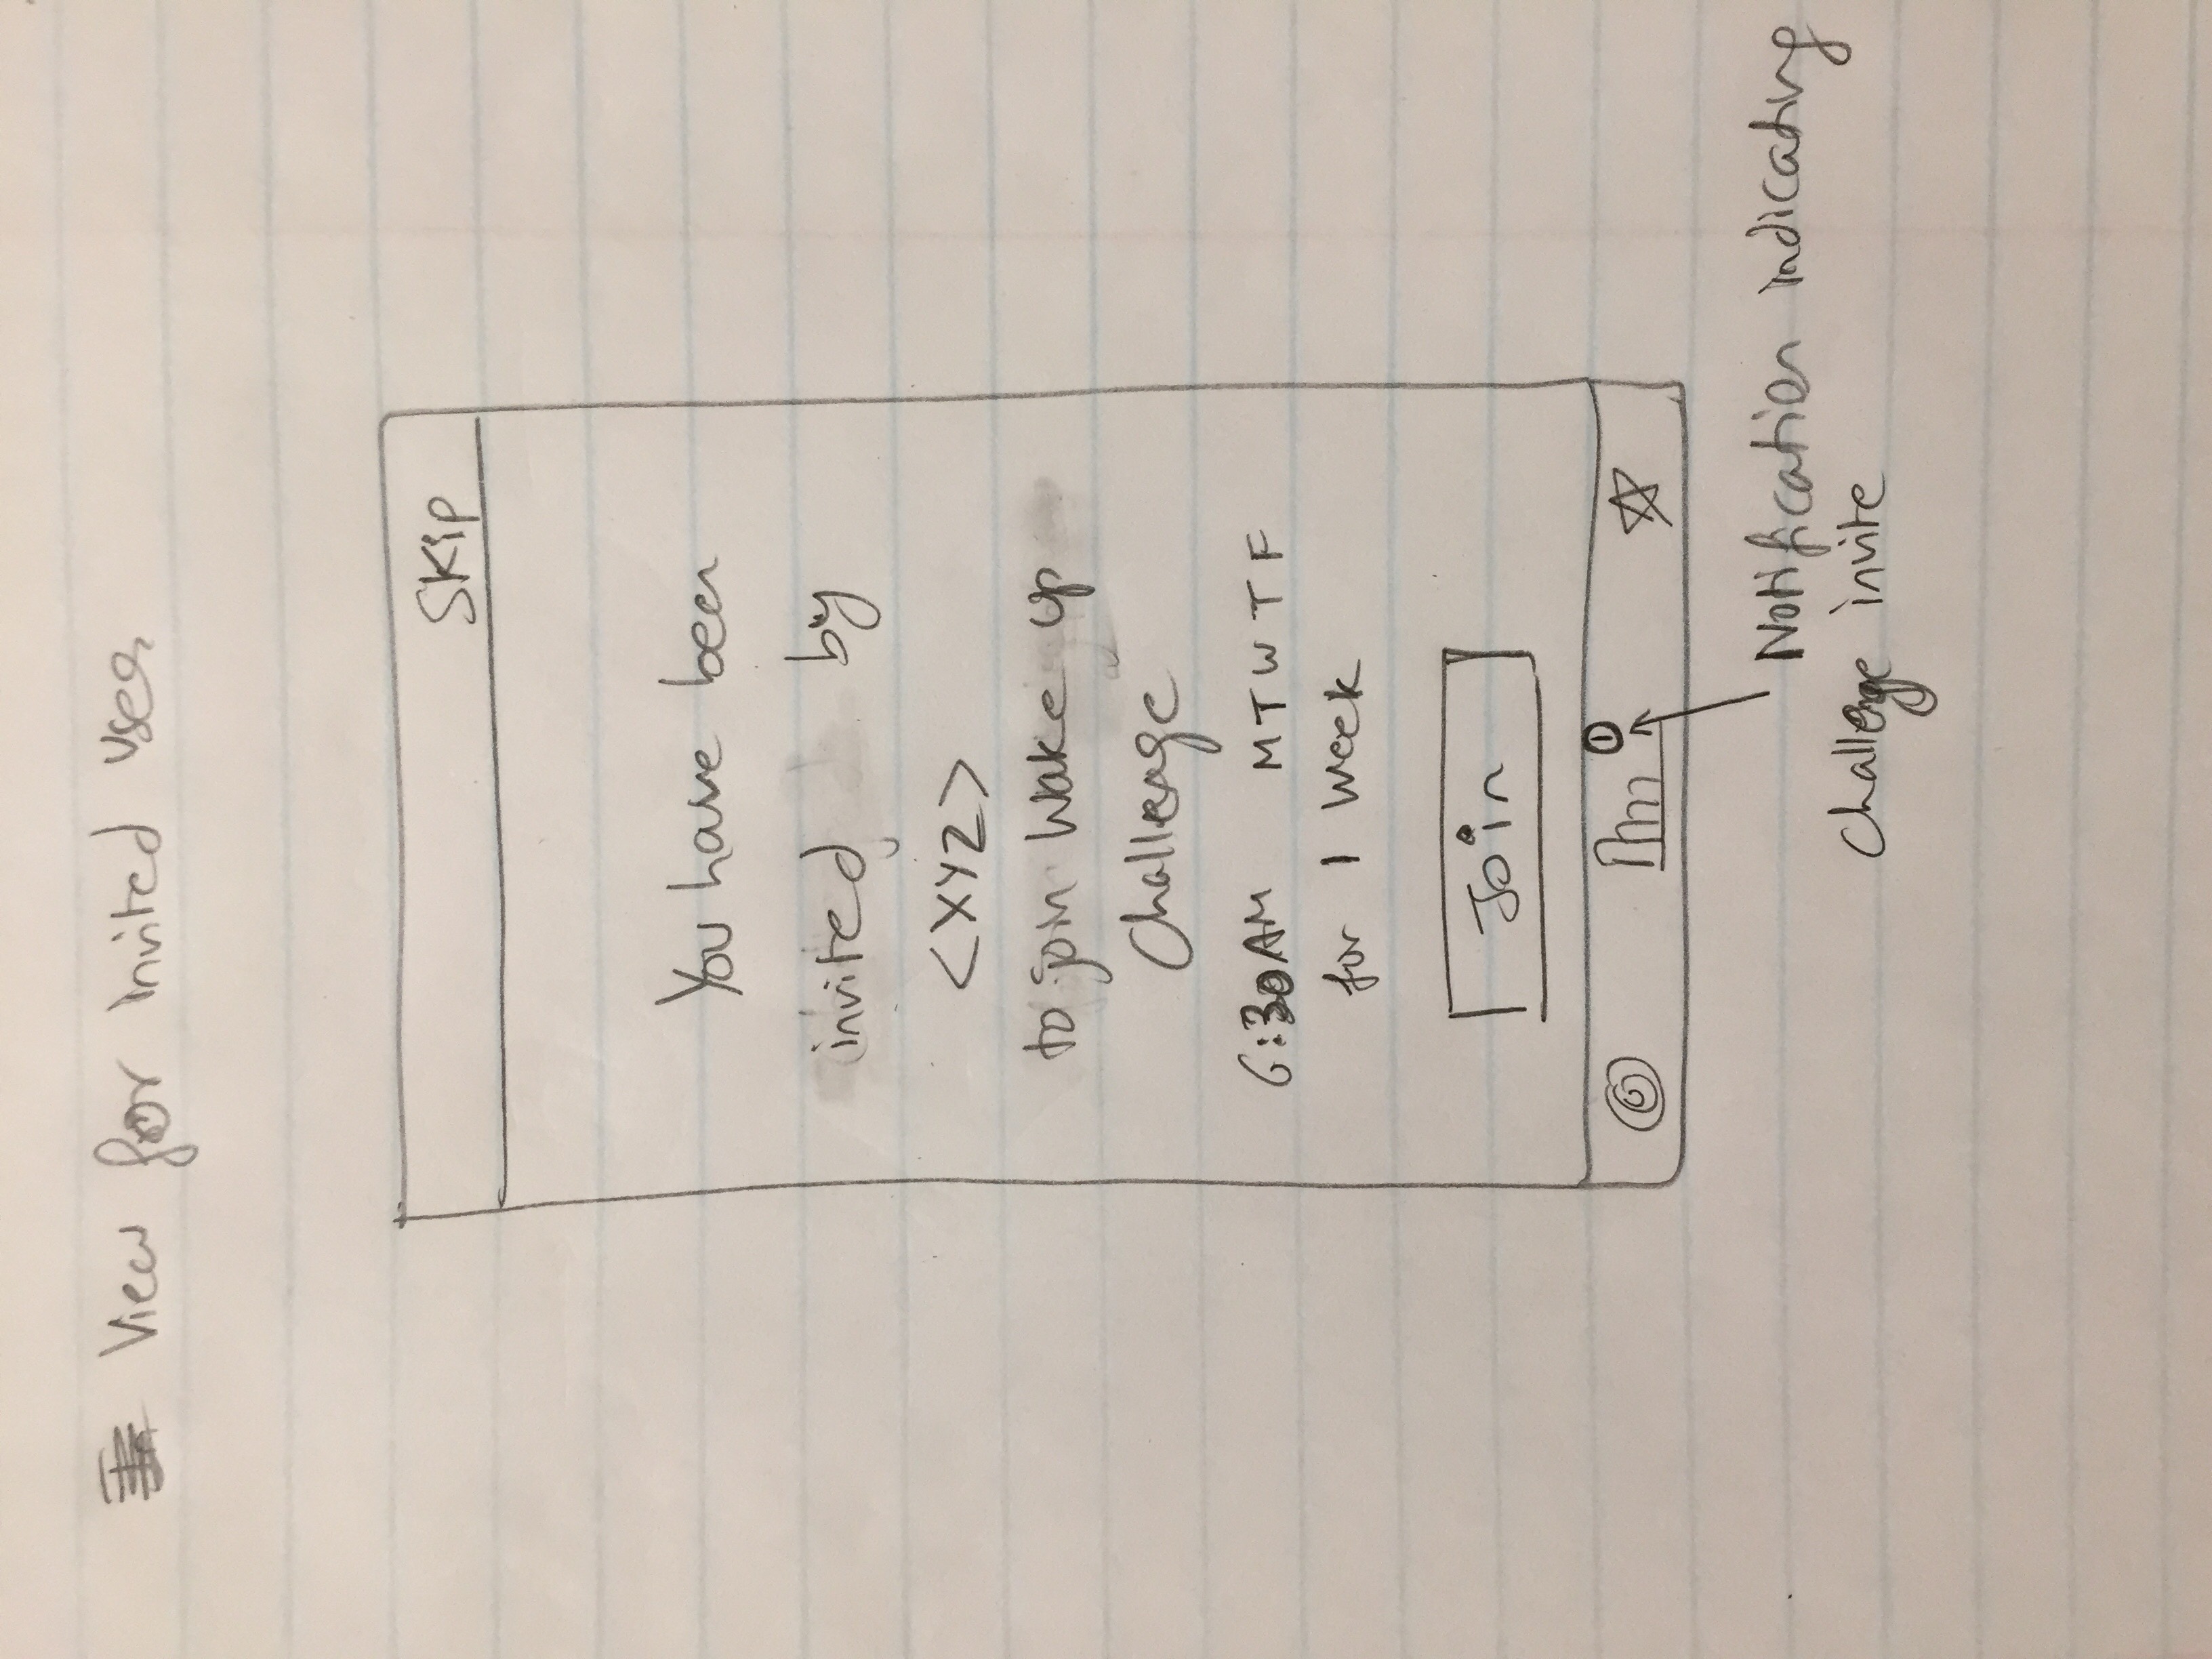 View for invited user
Skip
You have been
invited by
<XYZ>
to join Wake up
Challenge
6:30AM M T W T F
for 1 Week
Join
1
Notification indicating
Challenge invite